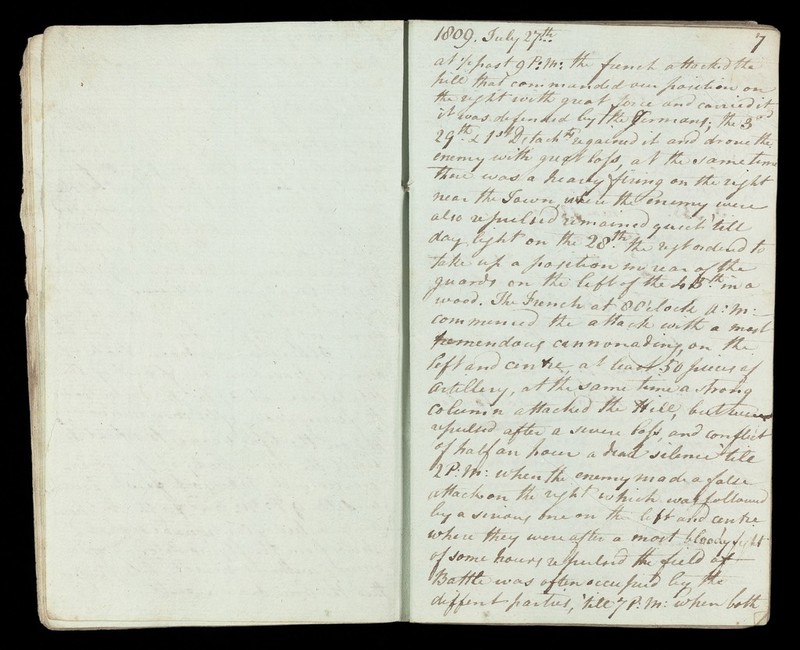 1809. July 27th 7
at ½ past 9 P:M: the french attacked the
hill that commanded our position on
the right with great force and carried it
it was defended by the Germans; the 3rd
29th & 1st Detachts regained it and drove the
enemy with great loss, at the same time
there was a heavy firing on the right
near the Town, where the enemy were
also repulsed remained quiet 'till
day light on the 28th the regt ordered to
take up a position in rear of the
guards on the left of the 45th in a
wood. The French at 8 O'clock A:M:
commenced the attack with a most
tremendous cannonading on the
left and centre, at least 50 pieces of
Artillery, at the same time a strong
Column attacked the Hill, but were
repulsed after a severe loss, and conflict
of half an hour a dead silence 'till
2 P:M: when the enemy made a false
attack on the right which was followed
by a serious one on the left and centre
where they were after a most bloody fight
of some hours repulsed the field of
Battle was often occupied by the
diffent parties, 'till 7 P:M: when both